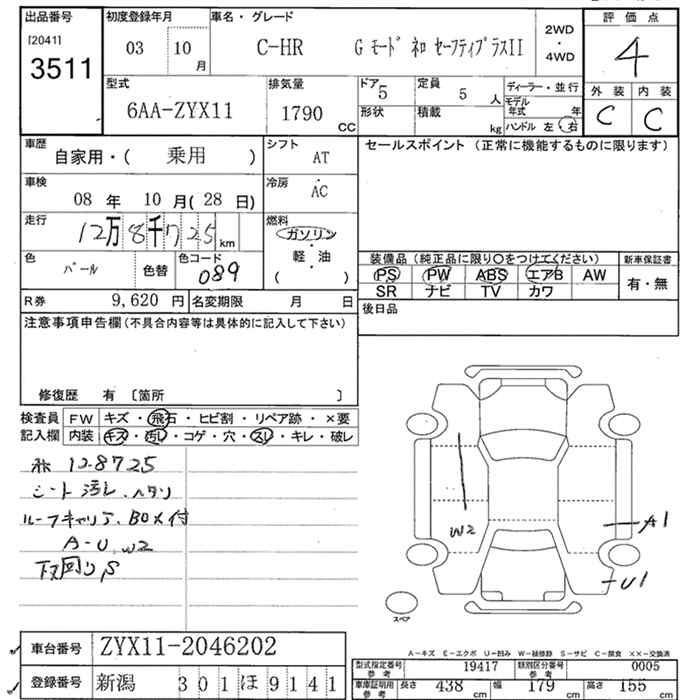 出品番号
[2041]
3511
初度登録年月
03 10 月
車名・グレード
C-HR Gモード ネロ セーフティプラスII
2WD
・
4WD
評価点
4
外装 内装
C C
型式
6AA-ZYX11
排気量
1790 CC
ドア 5
形状
定員 5 人
積載 kg
ディーラー・並行
モデル年式 年
ハンドル 左・右
車歴
自家用・( 乗用 )
シフト
AT
セールスポイント (正常に機能するものに限ります)
車検
08 年 10 月( 28 日)
冷房
AC
走行
12万8千725 km
燃料
ガソリン
・
軽・油
・
( )
色
パール
色替
色コード
089
装備品(純正品に限り〇をつけてください)
新車保証書
PS PW ABS エアB AW
SR ナビ TV カワ
有・無
R券 9,620 円
名変期限 月 日
後日品
注意事項申告欄(不具合内容等は具体的に記入して下さい)
修復歴 有 〔箇所 〕
検査員
記入欄
FW キズ・飛石・ヒビ割・リペア跡・×要
内装 キズ・汚レ・コゲ・穴・スレ・キレ・破レ
128725
シート汚レ、ヘタリ
ルーフキャリア、BOX付
A-U、W2
下回りS
W2
A1
U1
スペア
A-キズ E-エクボ U-凹み W-補修跡 S-サビ C-腐食 ××-交換済
車台番号 ZYX11-2046202
登録番号 新潟 301ほ9141
型式指定番号 参考 19417
類別区分番号 参考 0005
車庫証明用 参考 長さ 438 cm 幅 179 cm 高さ 155 cm